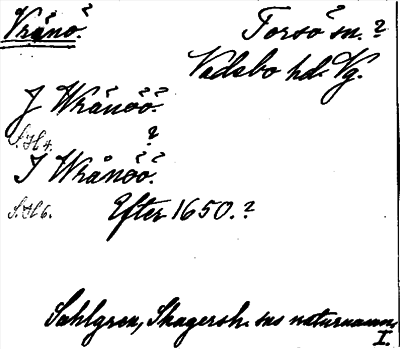 Vrånö.
Torsö sn. ?
Vadsbo hd. Vg.
J Wrånöö.
S. H 4.
?
J Wrånöö.
S. H 6.
Efter 1650. ?
Sahlgren, Skagersh. sns naturnamn,
I.